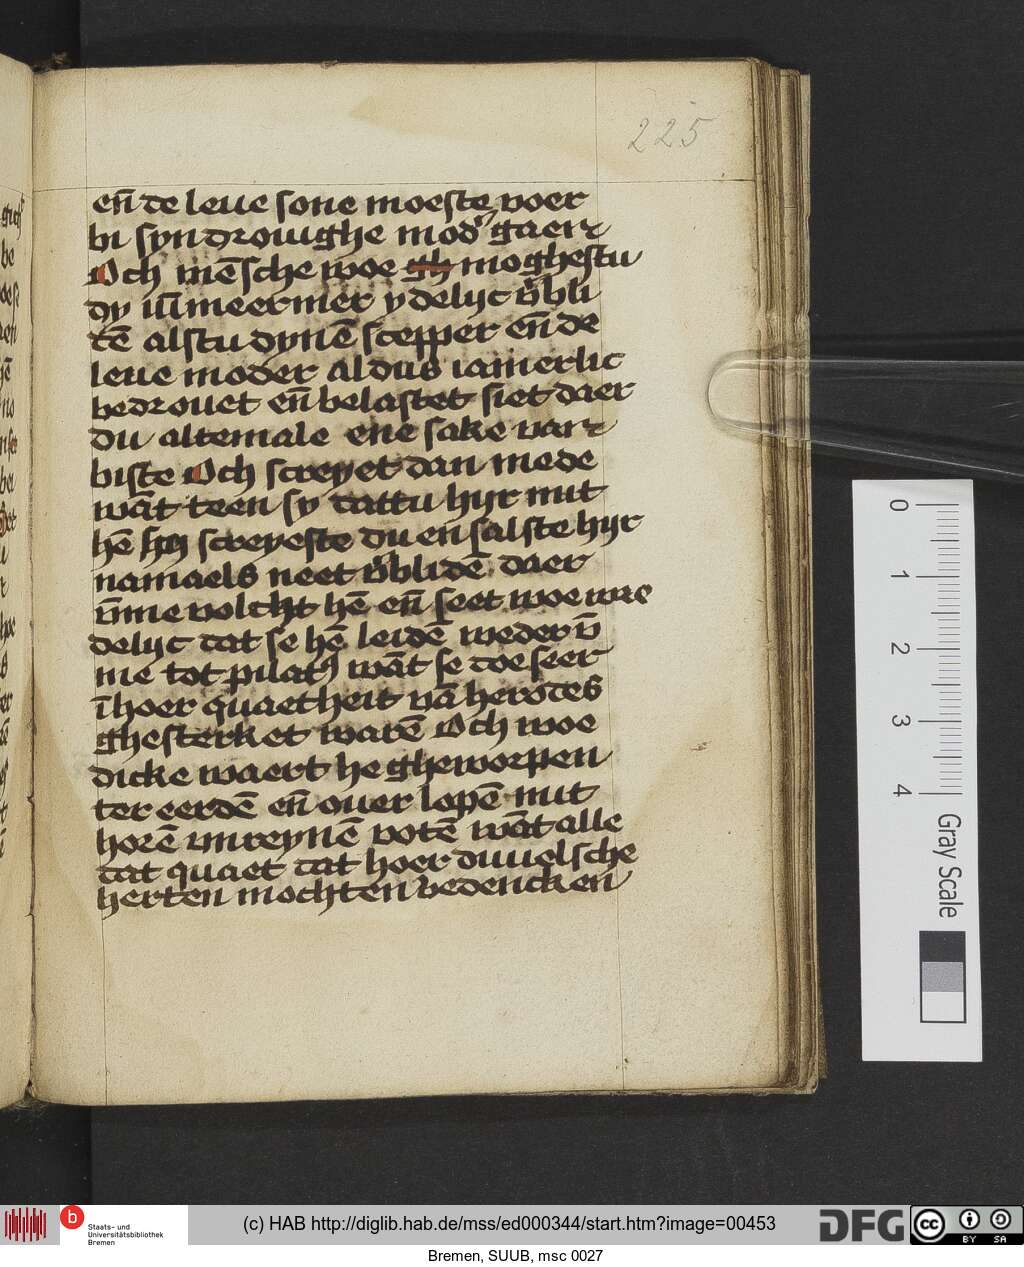 225
en̄ de leue sone moeste voer
bi syn drouighe mod' gaen
Och mēsche woe gh moghestu
dy ūmeermer ydelijc v'bli
tē alstu dynē scepper en̄ de
leue moder aldus iamerlic
bedrouet en̄ belastet siet daer
du altemale ene sake van
biste Och screyet dan mede
wāt teen sy dattu hijr mit
hē screyeste du en salste hijr
namaels neet v'blidē daer
v̄me volcht hē en̄ seet woe wre
delijc dat se hē leidē weder v̄
me tot pilat9 wāt se doe seer
ī hoer quaetheit vā herodes
ghesterket warē Och woe
dicke waert he gheworpen
ter eerdē en̄ ouer lopē mit
horē vnreynē votē wāt alle
dat quaet dat hoer duuelsche
herten mochten bedencken
0 1 2 3 4
Gray Scale
b
Staats- und
Universitätsbibliothek
Bremen
(c) HAB http://diglib.hab.de/mss/ed000344/start.htm?image=00453
DFG
cc BY SA
Bremen, SUUB, msc 0027